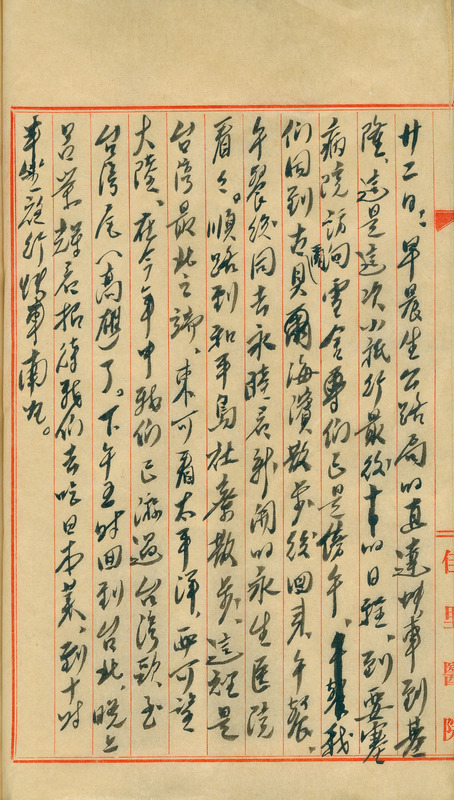 廿二日：早晨坐公路局的直達快車到基
隆、這是這次小旅行最後的日程、到要塞
病院訪問雪舍尊們已是傍午、我
們回到古貝爾海濱散步後回來午餐、
午餐後同去永時君新開的永生医院
看看。順路到和平島社寮散步、這裡是
台湾最北之端、東可看太平洋、西可望
大陸、在今年中我們已游過台湾頭、至
台湾尾（高雄）了。下午五時回到台北、晚上
呂榮輝君招待我們去吃日本菜、到十時
半坐夜行快車南北。
佳里醫院